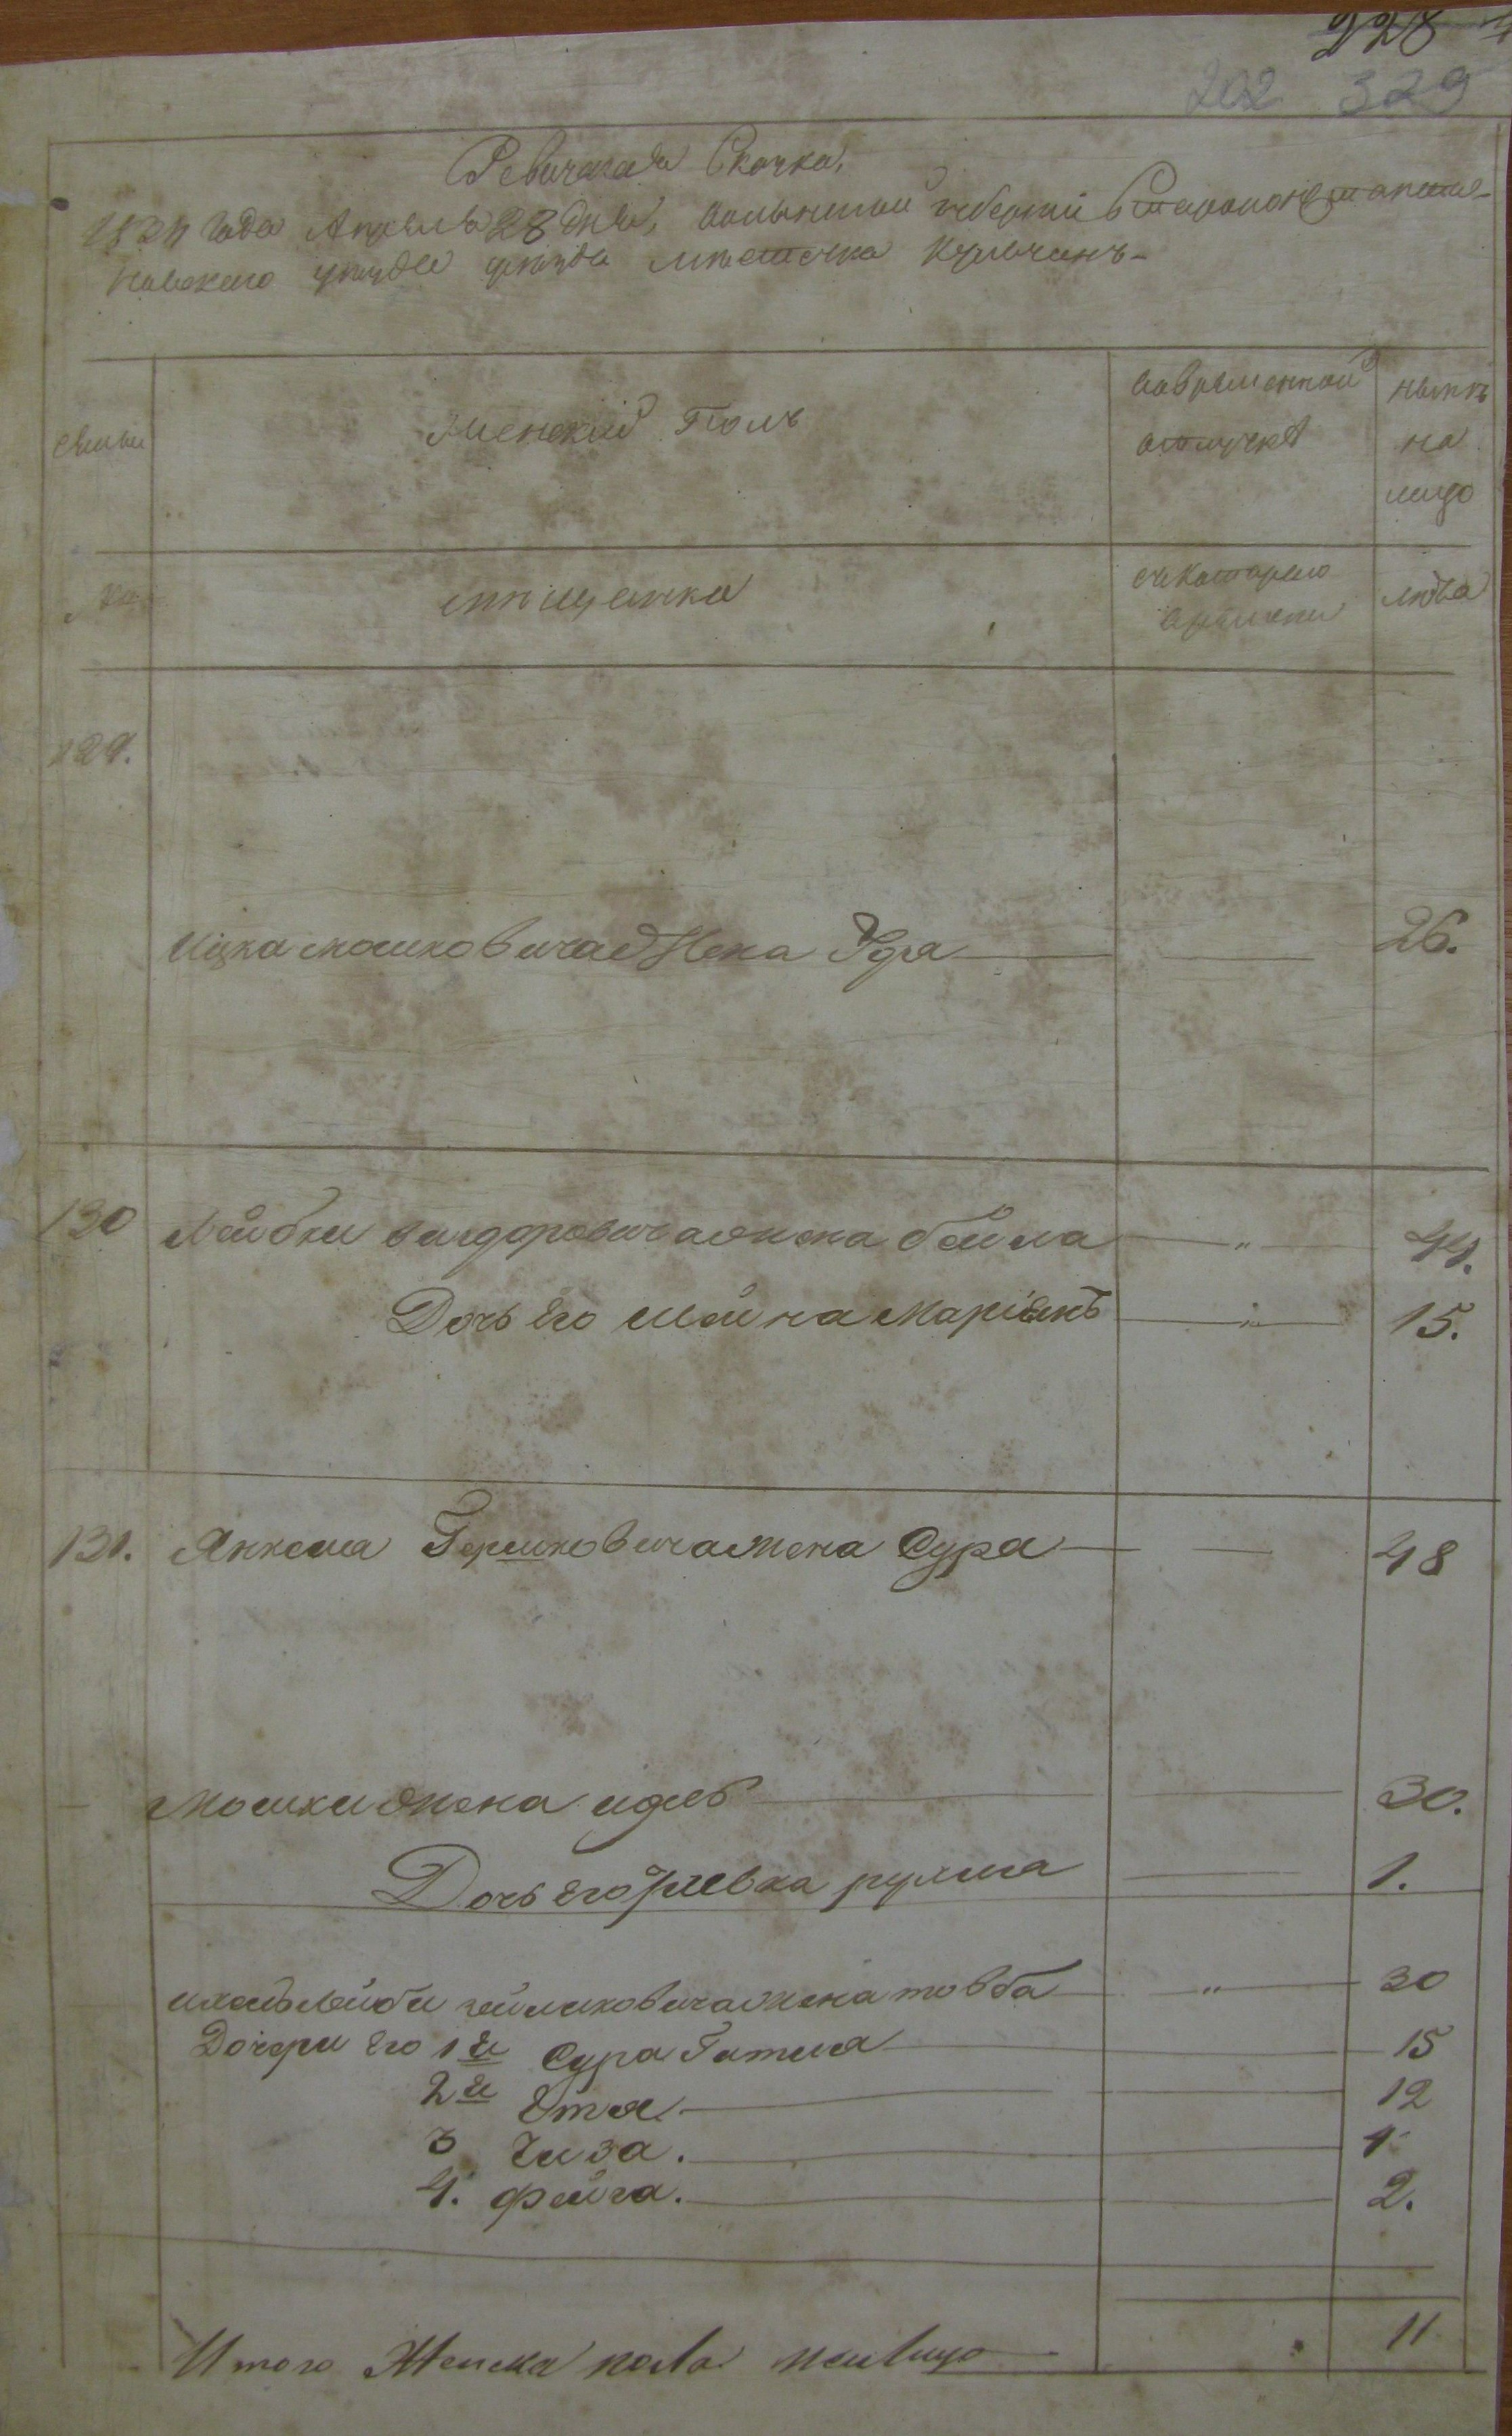 228
202 329
Ревизская Скачка,
1834 года Апреля 28 дня, волынской губернии Староконстантино-
новского уезда местечка Кульчинъ-
семьи
Женский Полъ
вовременной
отлучке
ныне
на
лицо
№
мещанка
съ котораго
времени
лета
129.
Ицка мошковича Жена Удя 26.
130 Лейбки вигдоровича жена бейла — " — 44.
Дочь Его шейна Маріямъ — " — 15.
131. Янкеля Гершковича Жена Сура 48
Мошки жена идль 30.
Дочь Его ривка рухля 1.
лейби жена товба — " — 30
Дочери Его 1я Сура Гитля 15
2я Етя 12
3 Гиза. 4
4. фейга. 2.
Итого Женска пола налицо 11